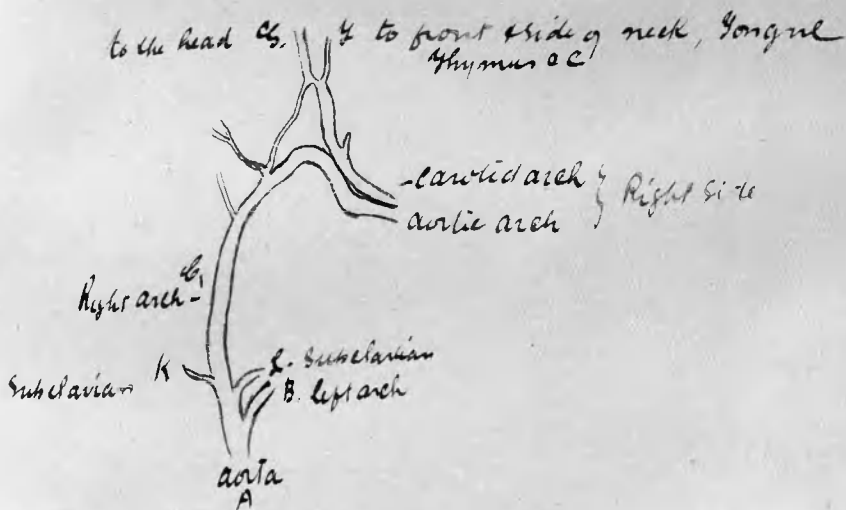 to the head G. F to front & side of neck, Tongue
Thymus &c
carotid arch } Right Side
aortic arch
Right arch C
K
Subclavian
L. Subclavian
B. left arch
aorta
A